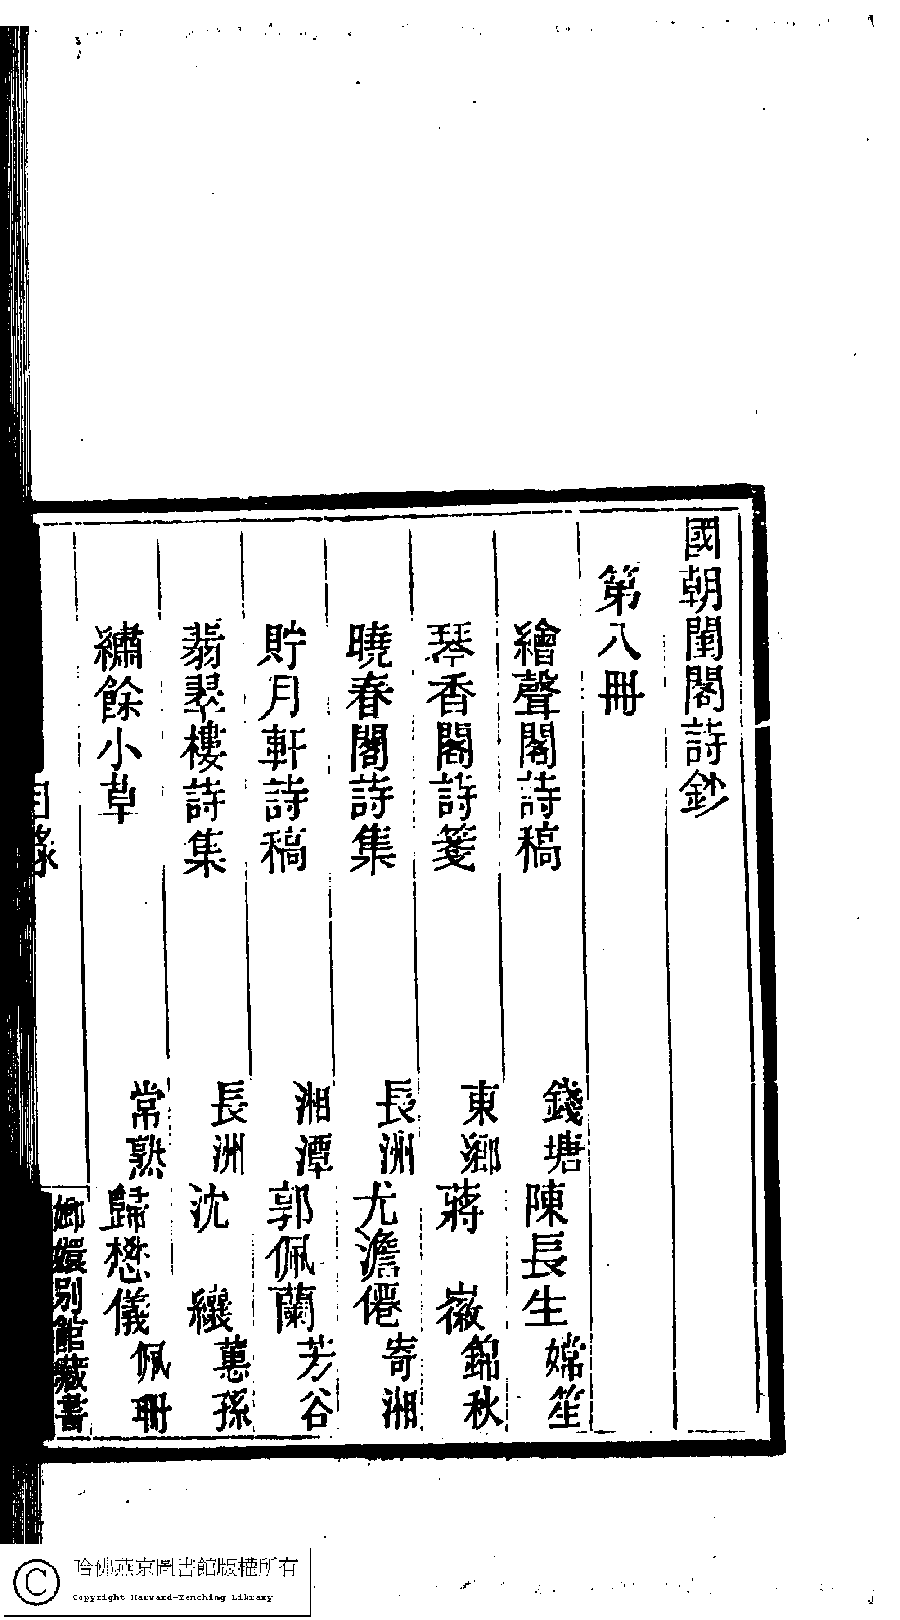 國朝閨閣詩鈔
第八冊
繪聲閣詩稿 錢塘 陳長生 嫦笙
琴香閣詩箋 東鄉 蔣 徽 錦秋
曉春閣詩集 長洲 尤澹僊 寄湘
貯月軒詩稿 湘潭 郭佩蘭 芳谷
翡翠樓詩集 長洲 沈 纕 蕙孫
繡餘小草 常熟 歸懋儀 佩珊
目錄
嫏嬛別館藏書
哈佛燕京圖書館版權所有
Copyright Harvard-Yenching Library